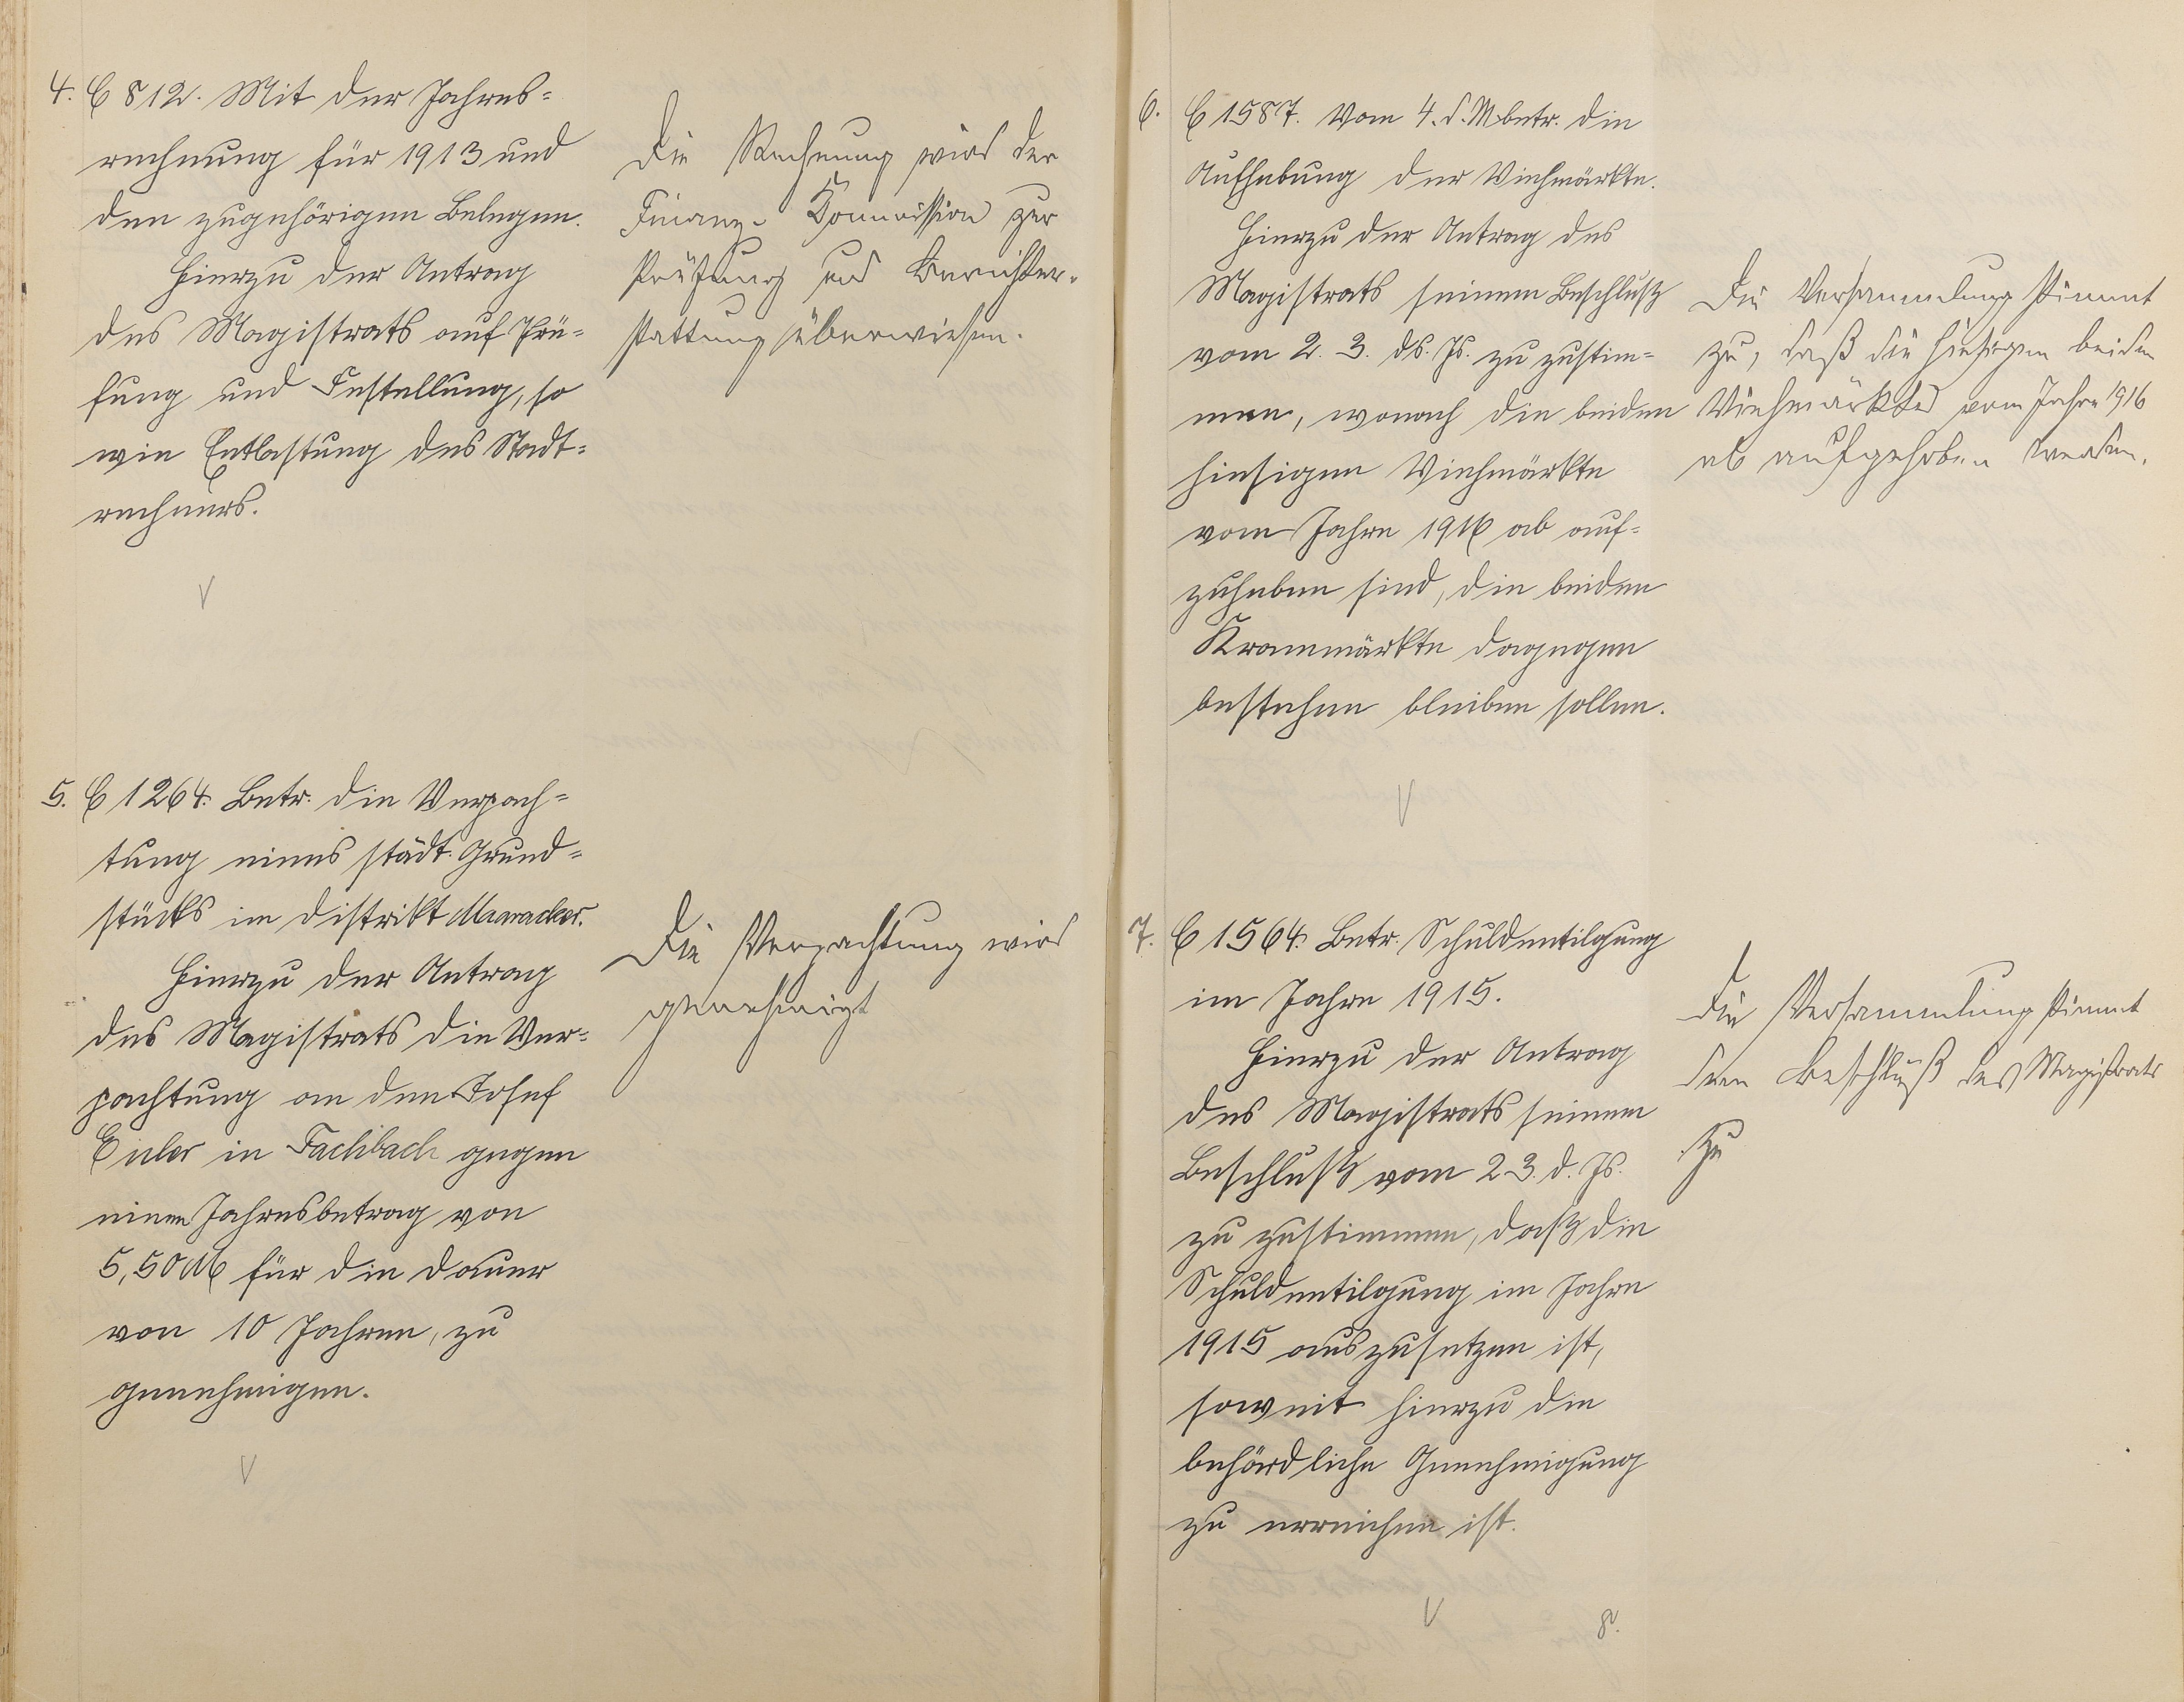 4. C 812. Mit der Jahres=
rechnung für 1913 und
den zugehörigen Belegen.
Hierzu der Antrag
des Magistrats auf Prü=
fung und Festellung, so
wie Entlastung des Stadt=
rechners.
Die Rechnung wird der
Finanz- Kommission zur
Prüfung und Berichter-
stattung überwiesen.
5. C 1264. Betr. die Verpach=
tung eines städt. Grund=
stücks im Distrikt
Hierzu der Antrag
des Magistrats die Ver=
pachtung an den Josef
Euler in Fachbach gegen
einen Jahresbetrag von
5,50 M für die Dauer
von 10 Jahren, zu
genehmigen.
Die Verpachtung wird
genehmigt
6. C 1587. Vom 4. d. M. betr. die
Aufhebung der Viehmärkte.
Hierzu der Antrag des
Magistrats seinem Beschluß
vom 2. 3. ds. Js. zu zustim=
men, wonach die beiden
hiesigen Viehmärkte
vom Jahre 1916 ab auf=
zuheben sind, die beiden
Krammärkte dagegen
bestehen bleiben sollen.
Die Versammlung stimmt
zu, daß die hiesigen beiden
Viehmärkte vom Jahre 1916
ab aufgehoben werden.
7. C 1564. Betr. Schuldentilgung
im Jahre 1915.
Hierzu der Antrag
des Magistrats seinem
Beschluß vom 2 3. d. Js.
zu zustimmen, daß die
Schuldentilgung im Jahre
1915 auszusetzen ist,
soweit hierzu die
behördliche Genehmigung
zu erreichen ist.
Die Versammlung stimmt
dem Beschluß des Magistrats
zu
8.